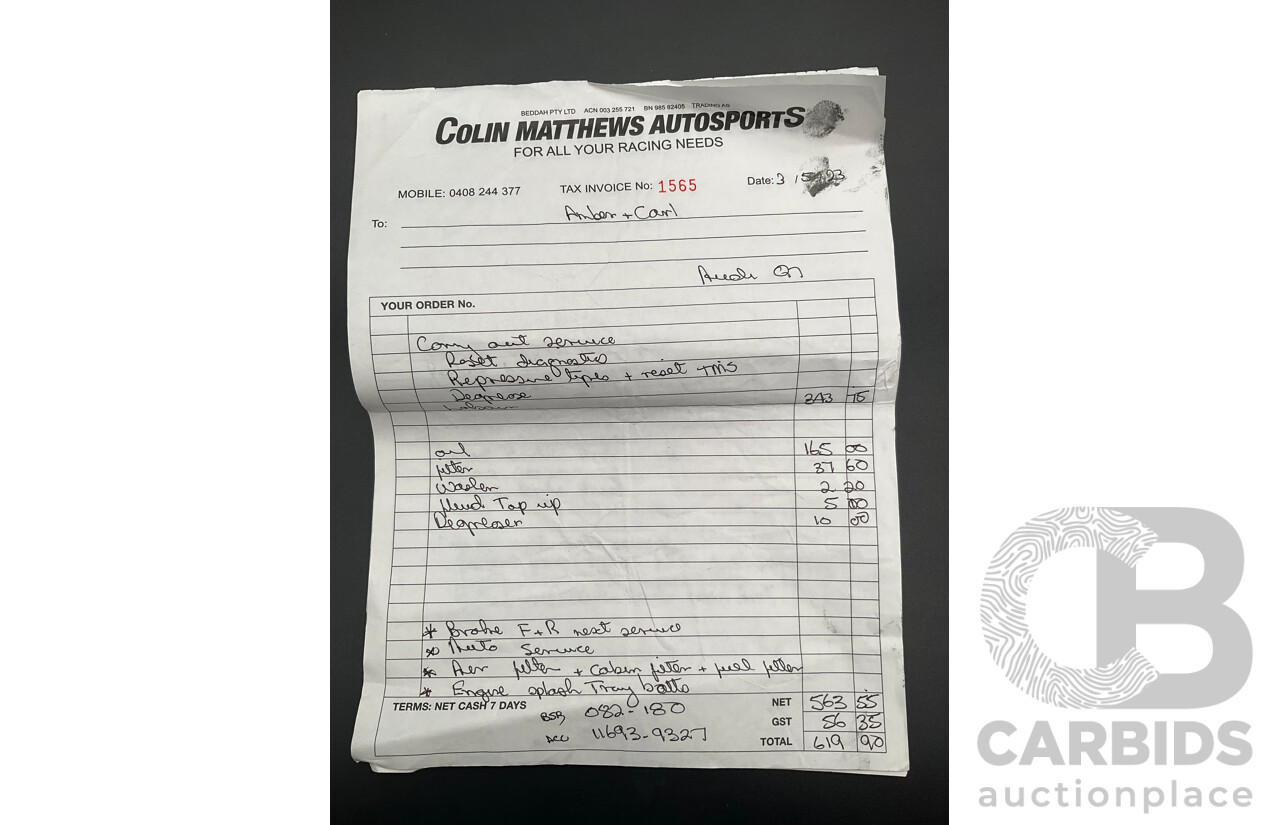 BEDDAH PTY LTD ACN 003 255 721 BN 985 82405 TRADING AS
COLIN MATTHEWS AUTOSPORTS
FOR ALL YOUR RACING NEEDS
MOBILE: 0408 244 377 TAX INVOICE No: 1565 Date: 3 / 5 / 23
To: Amber + Carl
Audi
YOUR ORDER No.
Carry out service
Reset diagnostics
Repressure tyres + reset TMS
Degrease 343 75
Labour
oil 165 00
filter 37 60
Washer 2 20
Fluid Top up 5 00
Degreaser 10 00
* Brake F+R next service
* Auto Service
* Air filter + Cabin filter + fuel filter
* Engine splash Tray bolts
TERMS: NET CASH 7 DAYS NET 563 55
BSB 082-180 GST 56 35
ACC 11693-9327 TOTAL 619 90
CB
CARBIDS
auctionplace